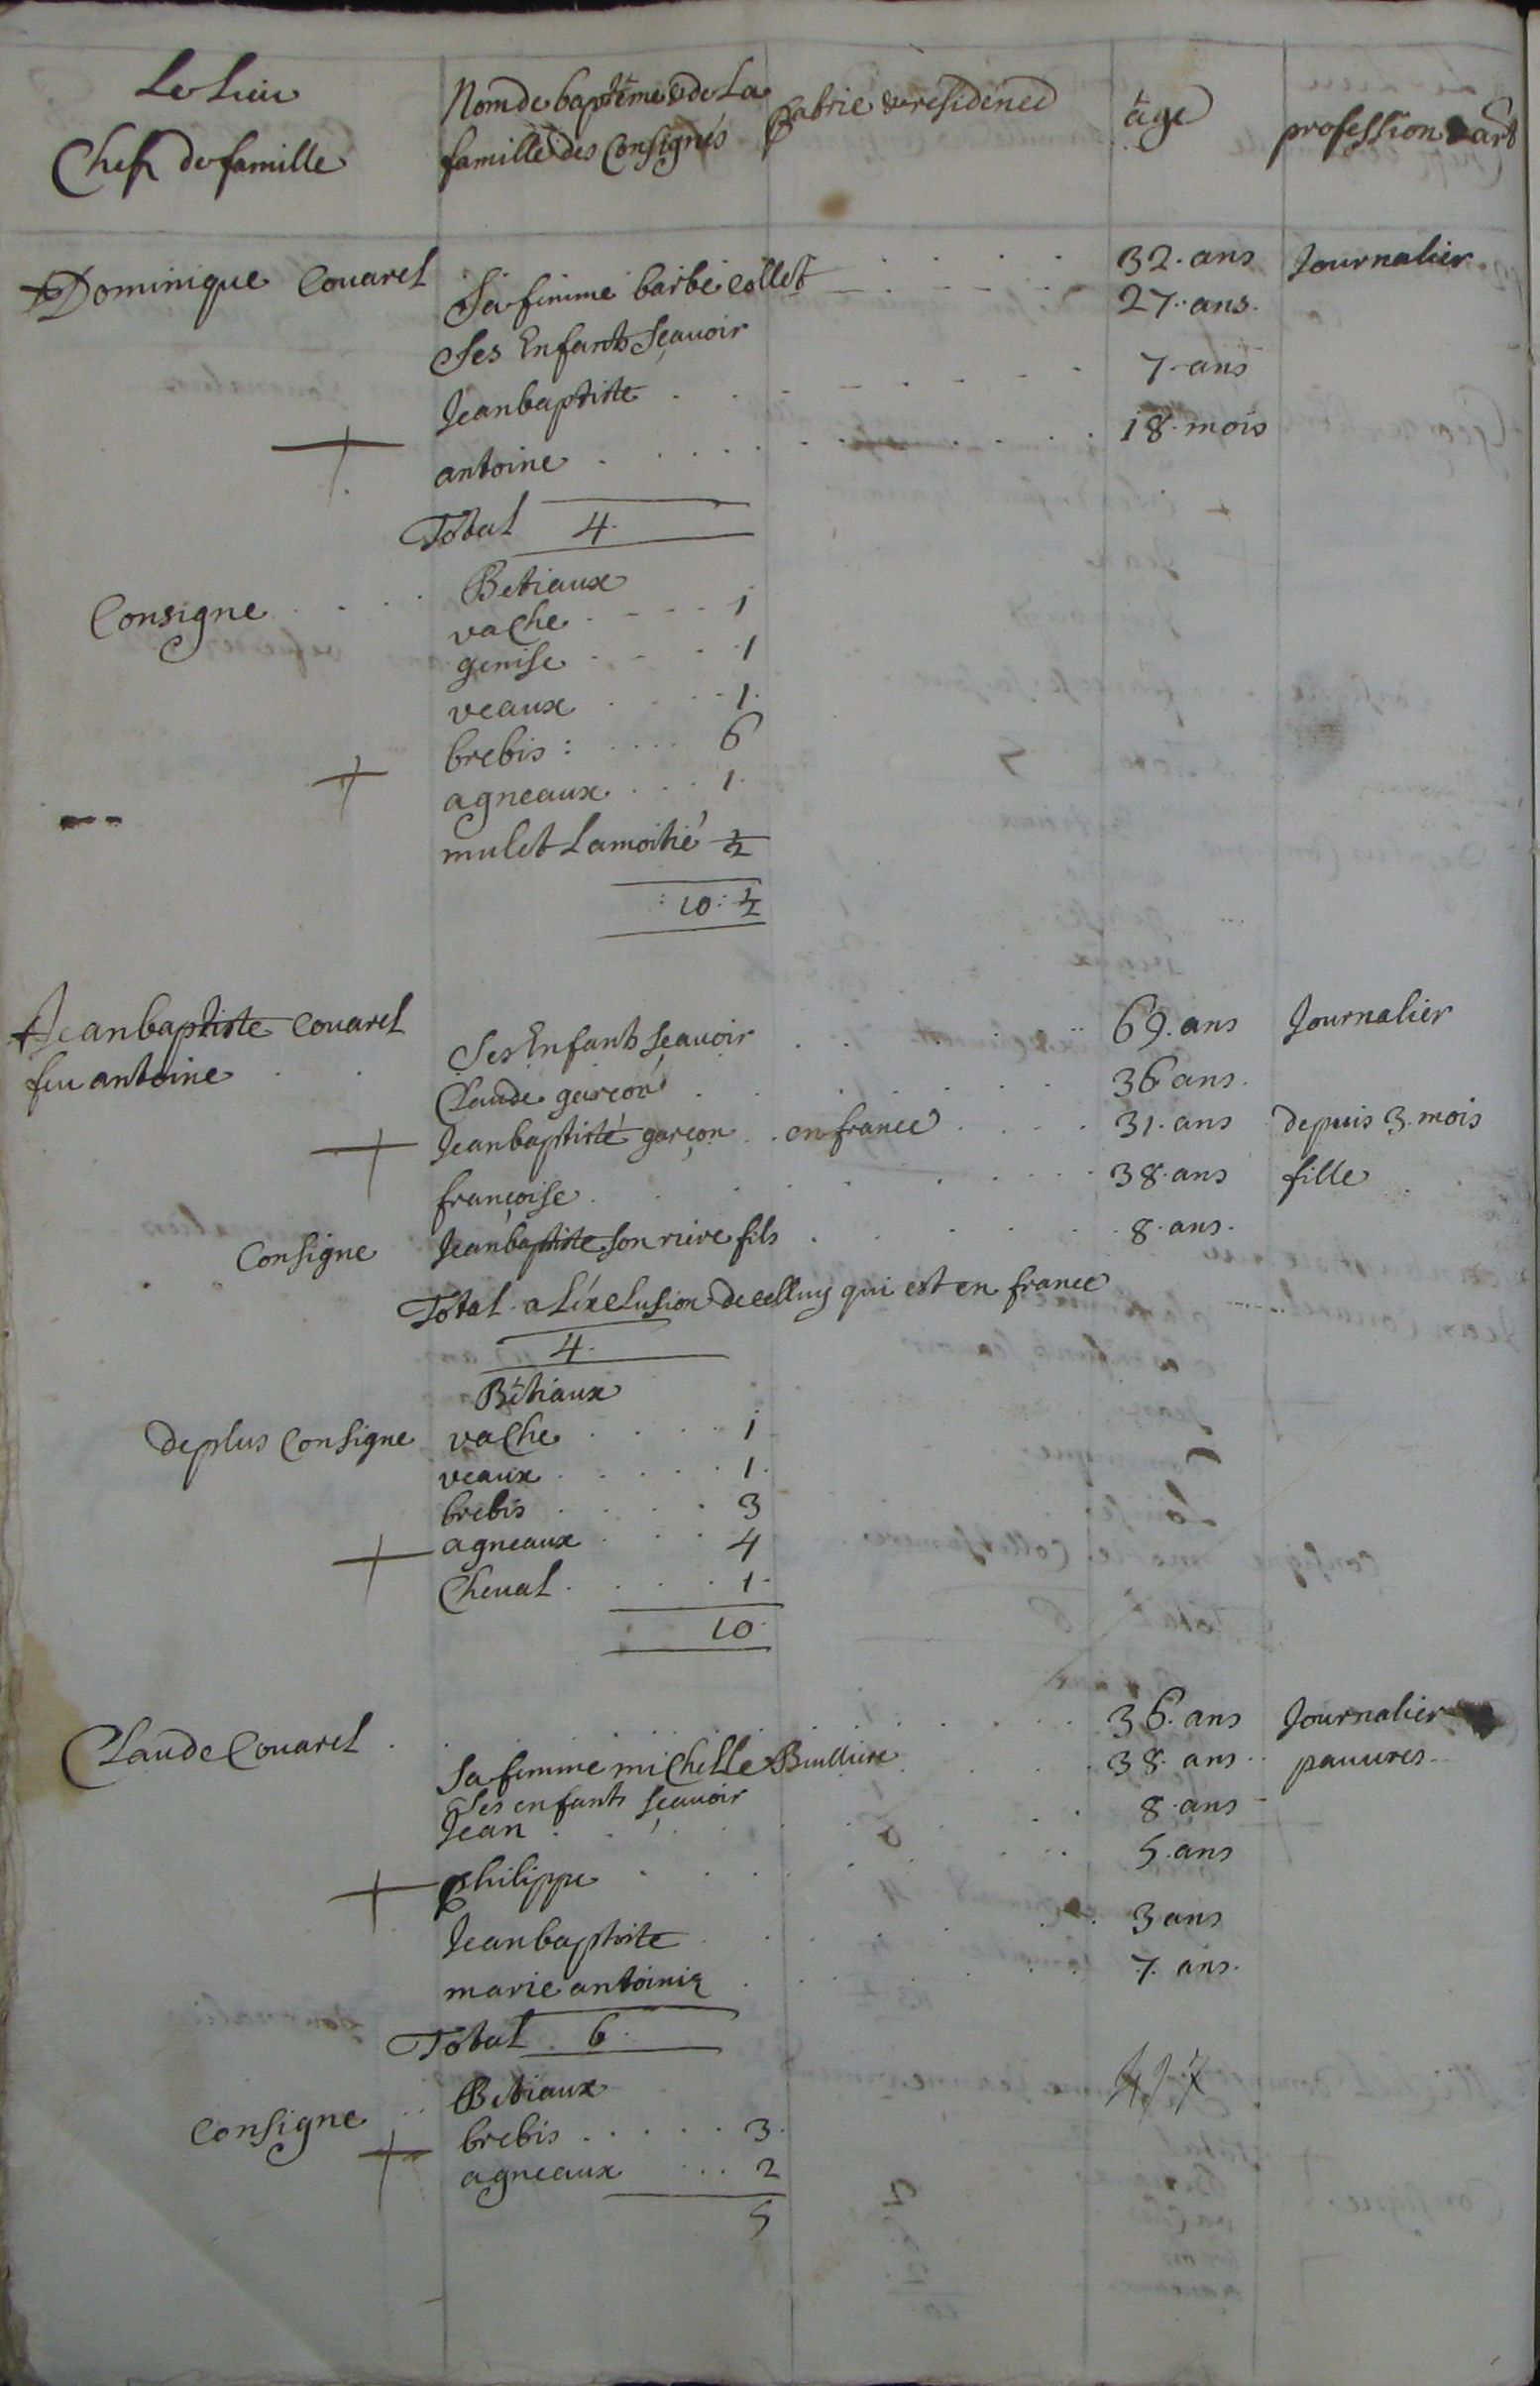 Le Lieu
Chef de famille
Nom de baptême & de La
famille des Consignés
patrie & residence
âge
profession & art
Dominique Couarel 32. ans Journalier
Sa femme barbe collet 27. ans.
Ses Enfants sçauoir
Jean baptiste 7. ans
antoine 18. mois
Total 4.
Consigne Betiaux
vache 1
genise 1
veaux 1.
brebis : 6
agneaux 1.
mulet La moitié ½
: 10 : ½
Jean baptiste Couarel 69. ans Journalier
feu antoine Ses Enfants sçauoir
Claude garçon 36 ans.
Jean baptiste garçon en france 31. ans depuis 3. mois
françoise 38. ans fille
Consigne Jean baptiste son riere fils 8. ans.
Total a L'éxclusion de celluy qui est en france
4.
Bétiaux
de plus Consigne vache 1
veaux 1.
brebis 3
agneaux 4
Cheual 1.
10.
Claude Couarel 36. ans Journalier
Sa femme michelle 38. ans pauures
Ses enfants sçauoir
Jean 8. ans
philippe 5. ans
Jean baptiste 3 ans
marie 7. ans.
Total 6.
Consigne Betiaux
brebis 3.
agneaux 2
5